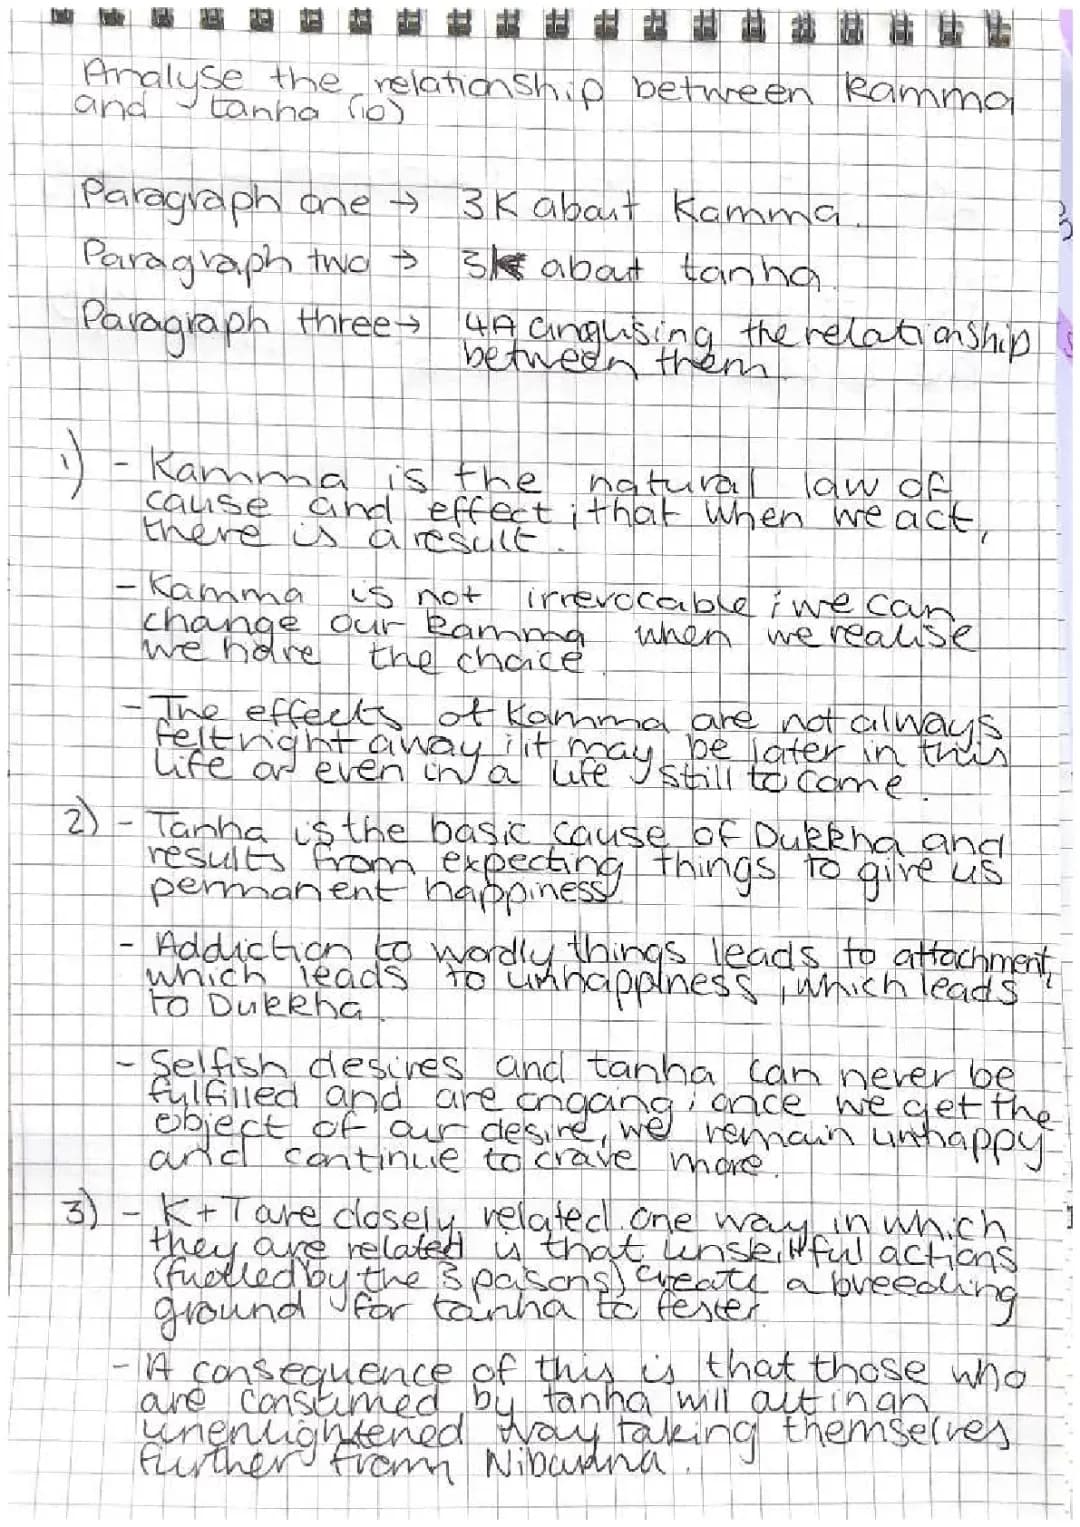 Analyse the relationship between kamma
and tanha (10)
Paragraph one → 3K about Kamma.
Paragraph two → 3K about tanha.
Paragraph three → 4A analysing the relationship
between them
1) - Kamma is the natural law of
cause and effect; that when we act,
there is a result.
- Kamma is not irrevocable; we can
change our kamma when we realise
we have the choice.
- The effects of Kamma are not always
felt right away; it may be later in this
life or even in a life still to come.
2) - Tanha is the basic cause of Dukkha and
results from expecting things to give us
permanent happiness
- Addiction to wordly things leads to attachment,
which leads to unhappiness, which leads
to Dukkha.
- Selfish desires and tanha can never be
fulfilled and are ongoing; once we get the
object of our desire, we remain unhappy
and continue to crave more.
3) - K+T are closely related. One way in which
they are related is that unskillful actions
(fuelled by the 3 poisons) create a breeding
ground for tanha to fester.
- A consequence of this is that those who
are consumed by tanha will act in an
unenlightened way taking themselves
further from Nibanna.